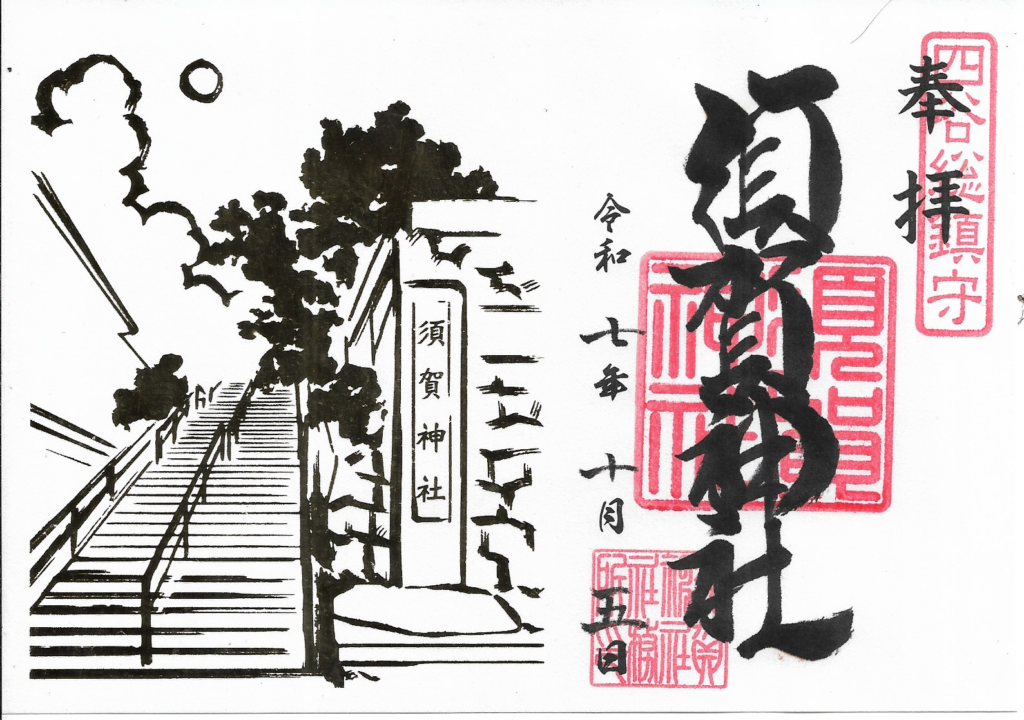 四谷総鎮守
奉拝
須賀神社
令和七年十月五日
須賀神社